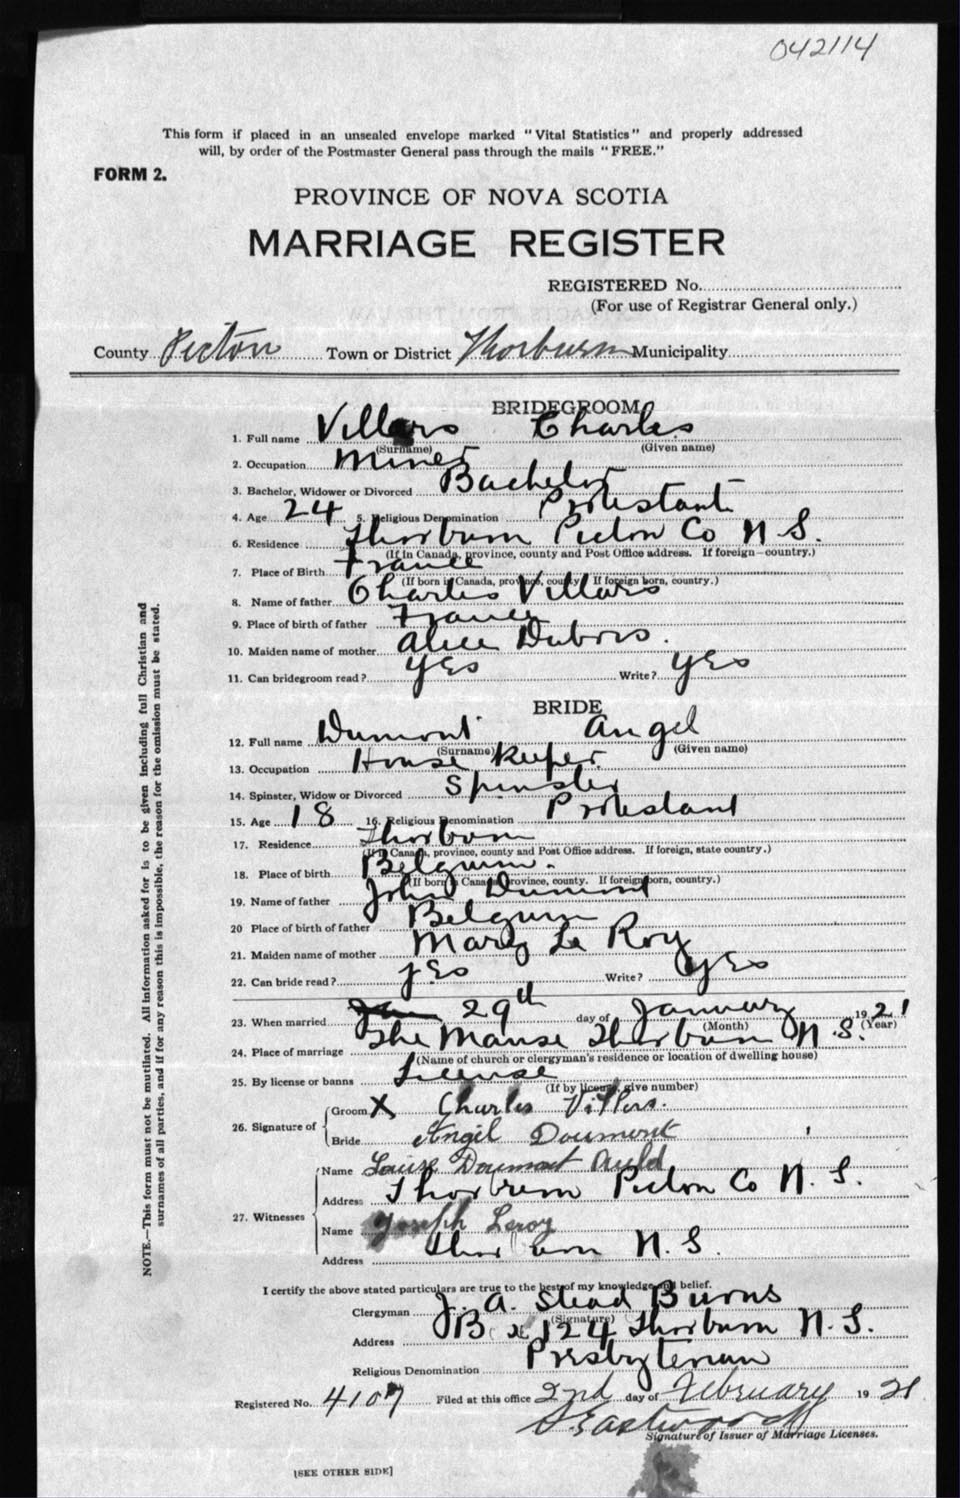 042114
This form if placed in an unsealed envelope marked "Vital Statistics" and properly addressed
will, by order of the Postmaster General pass through the mails "FREE."
FORM 2.
PROVINCE OF NOVA SCOTIA
MARRIAGE REGISTER
REGISTERED No.
(For use of Registrar General only.)
County Picton Town or District Thorburn Municipality
BRIDEGROOM
1. Full name Villars Charles
(Surname) (Given name)
2. Occupation Miner
3. Bachelor, Widower or Divorced Bachelor
4. Age 24 5. Religious Denomination Protestant
6. Residence Thorburn Picton Co N S.
(If in Canada, province, county and Post Office address. If foreign—country.)
7. Place of Birth France
(If born in Canada, province, county. If foreign born, country.)
8. Name of father Charles Villars
9. Place of birth of father France
10. Maiden name of mother Alice Dubois.
11. Can bridegroom read? yes Write? yes
BRIDE
12. Full name Dumont Angel
(Surname) (Given name)
13. Occupation House Keeper
14. Spinster, Widow or Divorced Spinster
15. Age 18 16. Religious Denomination Protestant
17. Residence Thorburn
(If in Canada, province, county and Post Office address. If foreign, state country.)
18. Place of birth Belgium.
(If born in Canada, province, county. If foreign born, country.)
19. Name of father John Dumont
20 Place of birth of father Belgium
21. Maiden name of mother Mary Le Roy
22. Can bride read? yes Write? yes
23. When married 29th day of January 1921
(Month) (Year)
24. Place of marriage The Manse Thorburn N.S.
(Name of church or clergyman's residence or location of dwelling house)
25. By license or banns License
(If by license, give number)
26. Signature of Groom X Charles Villers.
Bride Angil Doumont
27. Witnesses Name Louise Doumont Auld
Address Thorburn Picton Co N. S.
Name Joseph Leroy
Address Thorburn N.S.
I certify the above stated particulars are true to the best of my knowledge and belief.
Clergyman J. A. Stead Burns
(Signature)
Address Box 124 Thorburn N.S.
Religious Denomination Presbyterian
Registered No. 4107 Filed at this office 2nd day of February 1921
Eastwood
Signature of Issuer of Marriage Licenses.
[SEE OTHER SIDE]
NOTE.—This form must not be mutilated. All information asked for is to be given including full Christian and
surnames of all parties, and if for any reason this is impossible, the reason for the omission must be stated.